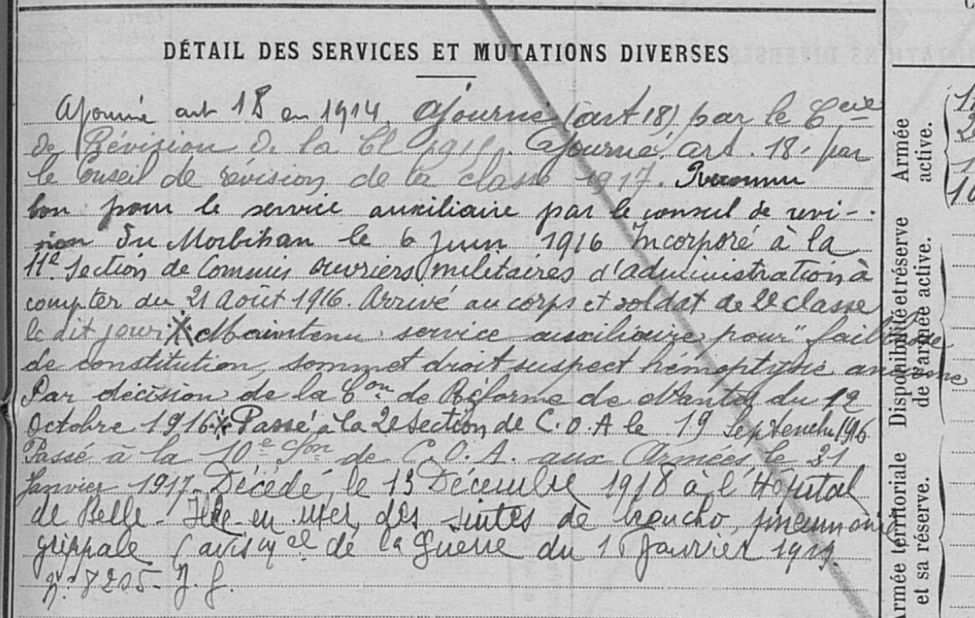 DÉTAIL DES SERVICES ET MUTATIONS DIVERSES
Ajourné art 18 en 1914. Ajourné (art 18) par le Ceil
de Révision de la Cl 1916. Ajourné, art. 18. par
le Conseil de révision de la classe 1917. Reconnu
bon pour le service auxiliaire par le conseil de revi-
sion du Morbihan le 6 Juin 1916 Incorporé à la
11e Section de Commis ouvriers militaires d'administration à
compter du 21 Août 1916. Arrivé au corps et soldat de 2e classe
le dit jour. Maintenu service auxiliaire pour "faiblesse
de constitution, sommet droit suspect hémoptysie ancienne
Par décision de la Con de Réforme de Nantes du 12
Octobre 1916. Passé à la 2e section de C.O.A le 19 Septembre 1916
Passé à la 10e Son de C.O.A. aux Armées le 31
Janvier 1917. Décédé, le 13 Décembre 1918 à l'Hôpital
de Belle-Ile en Mer, des suites de broncho, pneumonie
grippale (avis de la Guerre du 1 Janvier 1919.
No 8205-
Armée
active.
Disponibilité et réserve
de l'armée active.
Armée territoriale
et sa réserve.